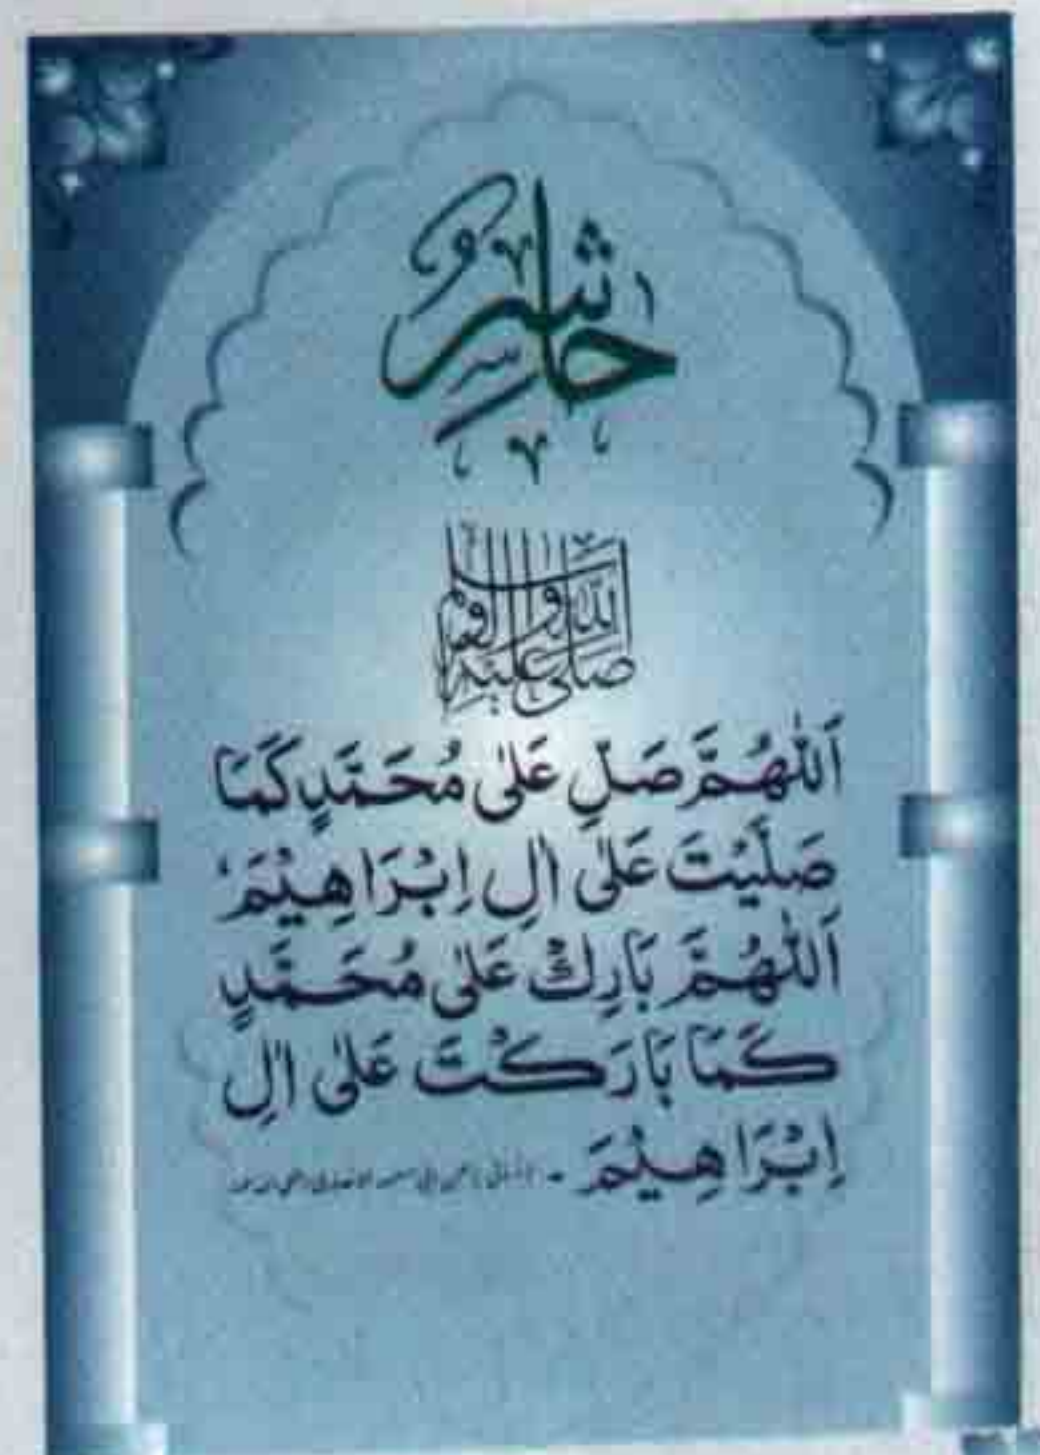 حَاشِرٌ
صَلَّى اللّٰهُ عَلَيْهِ وَاٰلِهٖ وَسَلَّمَ
اَللّٰهُمَّ صَلِّ عَلٰى مُحَمَّدٍ كَمَا
صَلَّيْتَ عَلٰى اٰلِ اِبْرَاهِيْمَ،
اَللّٰهُمَّ بَارِكْ عَلٰى مُحَمَّدٍ
كَمَا بَارَكْتَ عَلٰى اٰلِ
اِبْرَاهِيْمَ -